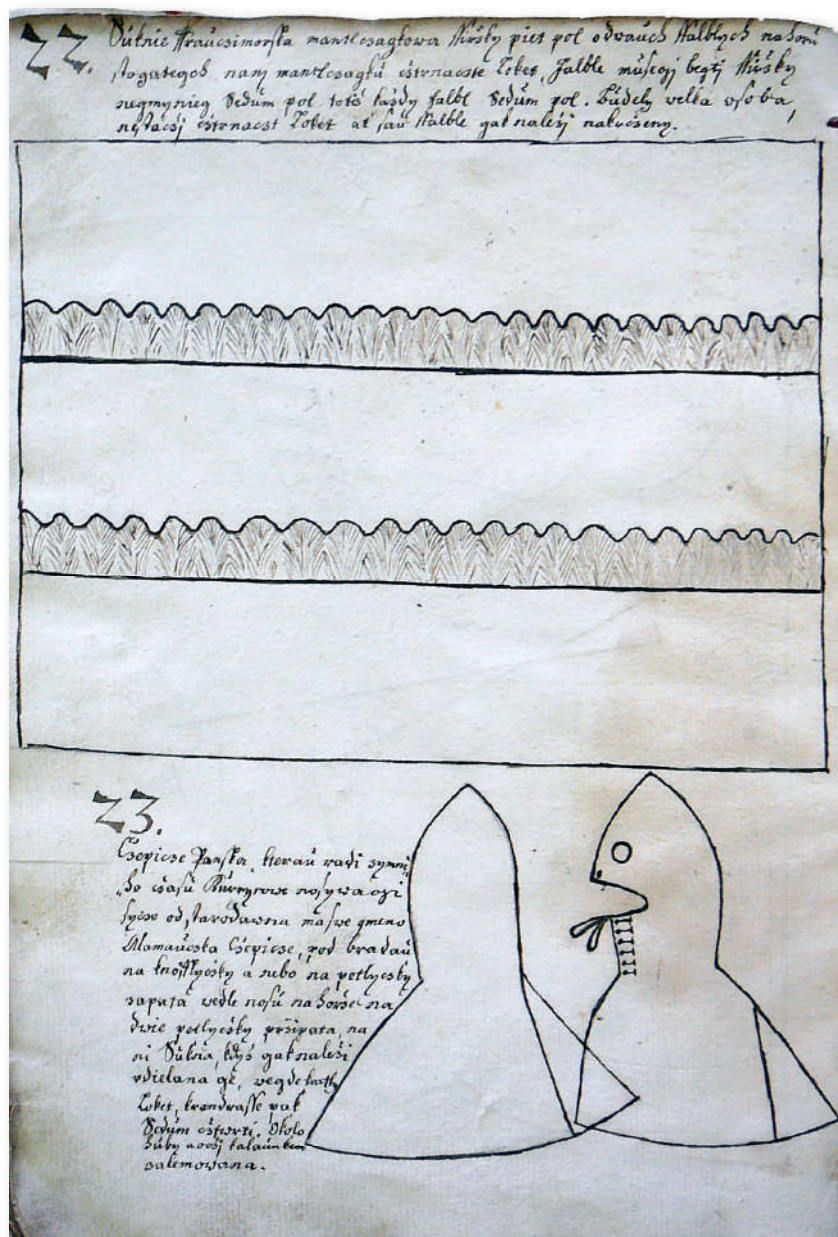 22. Suknie Krauczimorska mantlczagkowa Ssyrky piet pol odwauch Falblych nahoru
stogategch nanj mantlczagku cztrnaczte Loket, Falble musegj begtj Ssyrky
negmynieg Sedum pol totiž každy falbl Sedum pol. Budely welka osoba,
nestaczj cztrnaczt Loket at sau Falble gak naležj nakrčzeny.
23.
Czepicze Panska, kterau radi zymni
ho cžasu Kurryrowe nosywagi
od starodawna ma swe gmeno
Alamaucska Czepicze, pod bradau
na knofflycžky a nebo na petlycžky
zapata wedle nosu nahorže na
dwie petlycžky pržipata, na
ni Sukna, kdyš gak naleži
vdielana ge, wegde
Loket, pak
Sedum cžtwrti. Okolo
huby a ocžj
zalemowana.